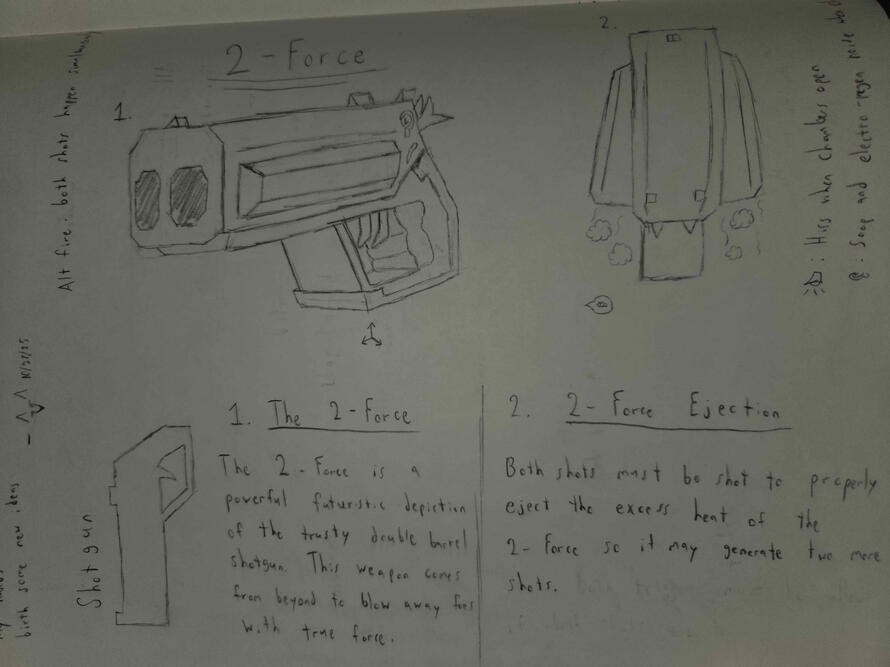 2-Force
1.
2.
1. The 2-Force
The 2-Force is a
powerful futuristic depiction
of the trusty double barrel
shotgun. This weapon comes
from beyond to blow away foes
with true force.
2. 2-Force Ejection
Both shots must be shot to properly
eject the excess heat of the
2-Force so it may generate two more
shots.
Alt fire: both shots happen
: Hiss when chambers open
: and electro-regen noise
Shotgun
birth some new ideas
10/27/25